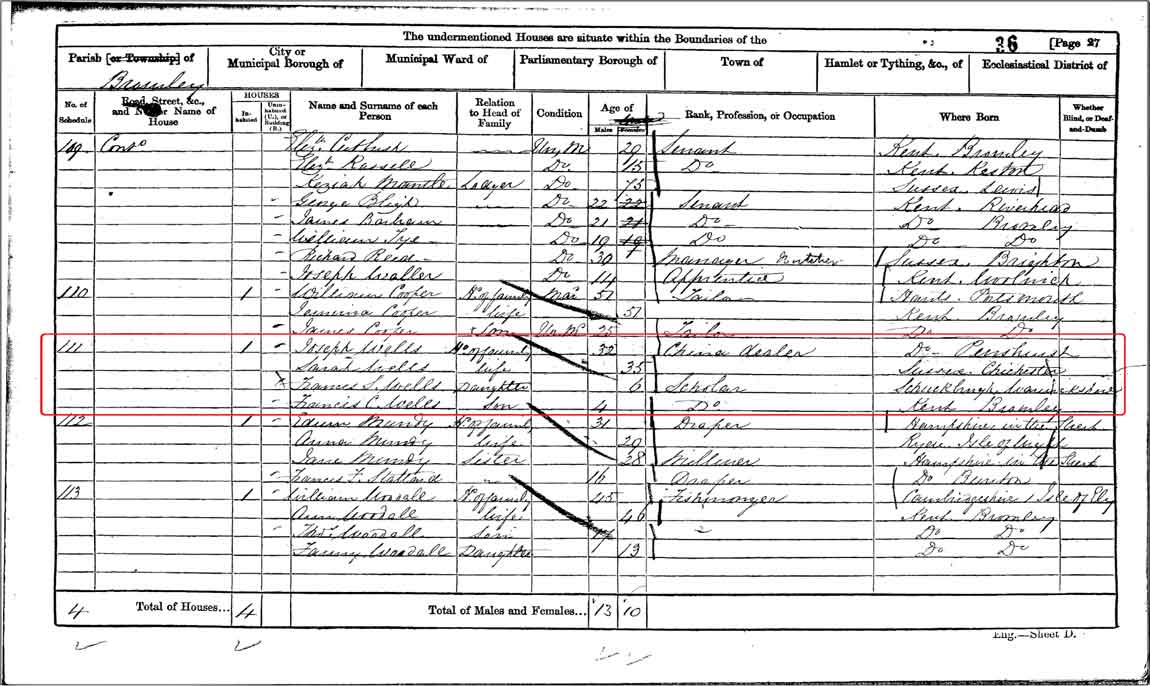 The undermentioned Houses are situate within the Boundaries of the
36 [Page 27
Parish [or Township] of Bromley City or Municipal Borough of Municipal Ward of Parliamentary Borough of Town of Hamlet or Tything, &c., of Ecclesiastical District of
No. of Schedule Road, Street, &c., and No. or Name of House HOUSES Inhabited Uninhabited (U.), or Building (B.) Name and Surname of each Person Relation to Head of Family Condition Age of Males Females Rank, Profession, or Occupation Where Born Whether Blind, or Deaf-and-Dumb
109 Contd Elizth Cutbush Unm 20 Servant Kent Bromley
Elizt Russell Do 15 Do Kent Keston
Keziah Mantle Lodger Do 75 Sussex Lewis
George Bligh Do 22 22 Servant Kent Riverhead
James Barham Do 21 21 Do Do Bromley
William Do 19 19 Do Do Do
Richard Reed Do 30 Manager Sussex Brighton
Joseph Waller Do 14 Apprentice Kent Woolwich
110 1 William Cooper Hd of family Mar 51 Tailor Hants Portsmouth
Jemima Cooper Wife 51 Kent Bromley
James Cooper Son Unm 25 Tailor Do Do
111 1 Joseph Wells Hd of family 32 China dealer Do Penshurst
Sarah Wells Wife 35 Sussex Chichester
Frances S. Wells Daughter 6 Scholar Schuckburgh Warwickshire
Francis C. Wells Son 4 Do Kent Bromley
112 1 Edwin Mundy Hd of family 31 Draper Hampshire in the
Anna Mundy Wife 20 Ryde Isle of Wight
Jane Mundy Sister 28 Milliner Hampshire in the
Francis F. 16 Draper Do
113 1 William Woodall Hd of family 45 Fishmonger Cambridgeshire Isle of Ely
Ann Woodall Wife 46 Kent Bromley
Thos Woodall Son Do Do
Fanny Woodall Daughter 13 Do Do
4 Total of Houses... 4 Total of Males and Females... 13 10
Eng.—Sheet D.